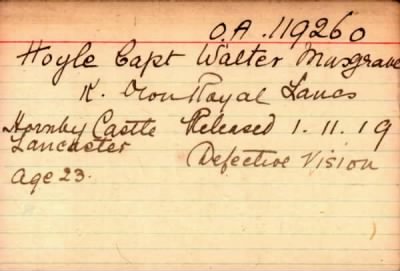 O.A. 119260
Hoyle Capt Walter Musgrave
K. Own Royal Lancs
Hornby Castle Released 1.11.19
Lancaster Defective Vision
Age 23.